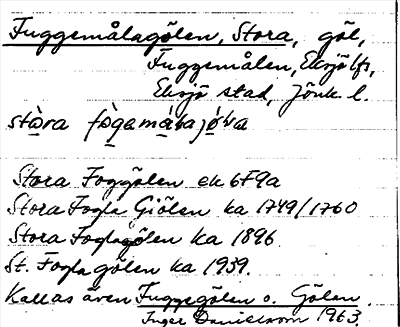 Fuggemålagölen, Stora, göl,
Fuggemålen, Eksjö lfs,
Eksjö stad, Jönk l.
Stora Foggölen ek 6F9a
Stora Fogla Giölen ka 1749/1760
Stora Foglagölen ka 1896
St. Foglagölen ka 1939.
Kallas även Fuggegölen o. Gölen.
Inger Danielsson 1963.